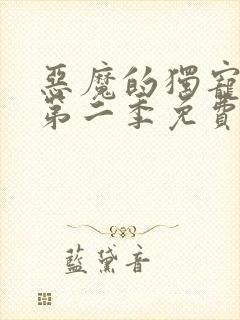 惡魔的獨寵
第二季免費
藍黛音